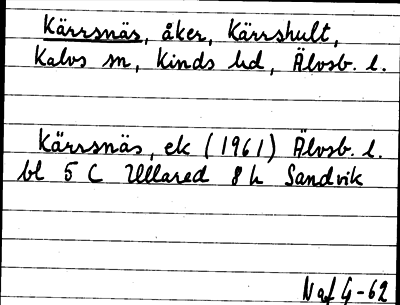 Kärrsnäs, åker, Kärrshult,
Kalvs sn, Kinds hd, Älvsb. l.
Kärrsnäs, ek (1961) Älvsb. l.
bl 5 C Ullared 8 h Sandvik
N af G-62